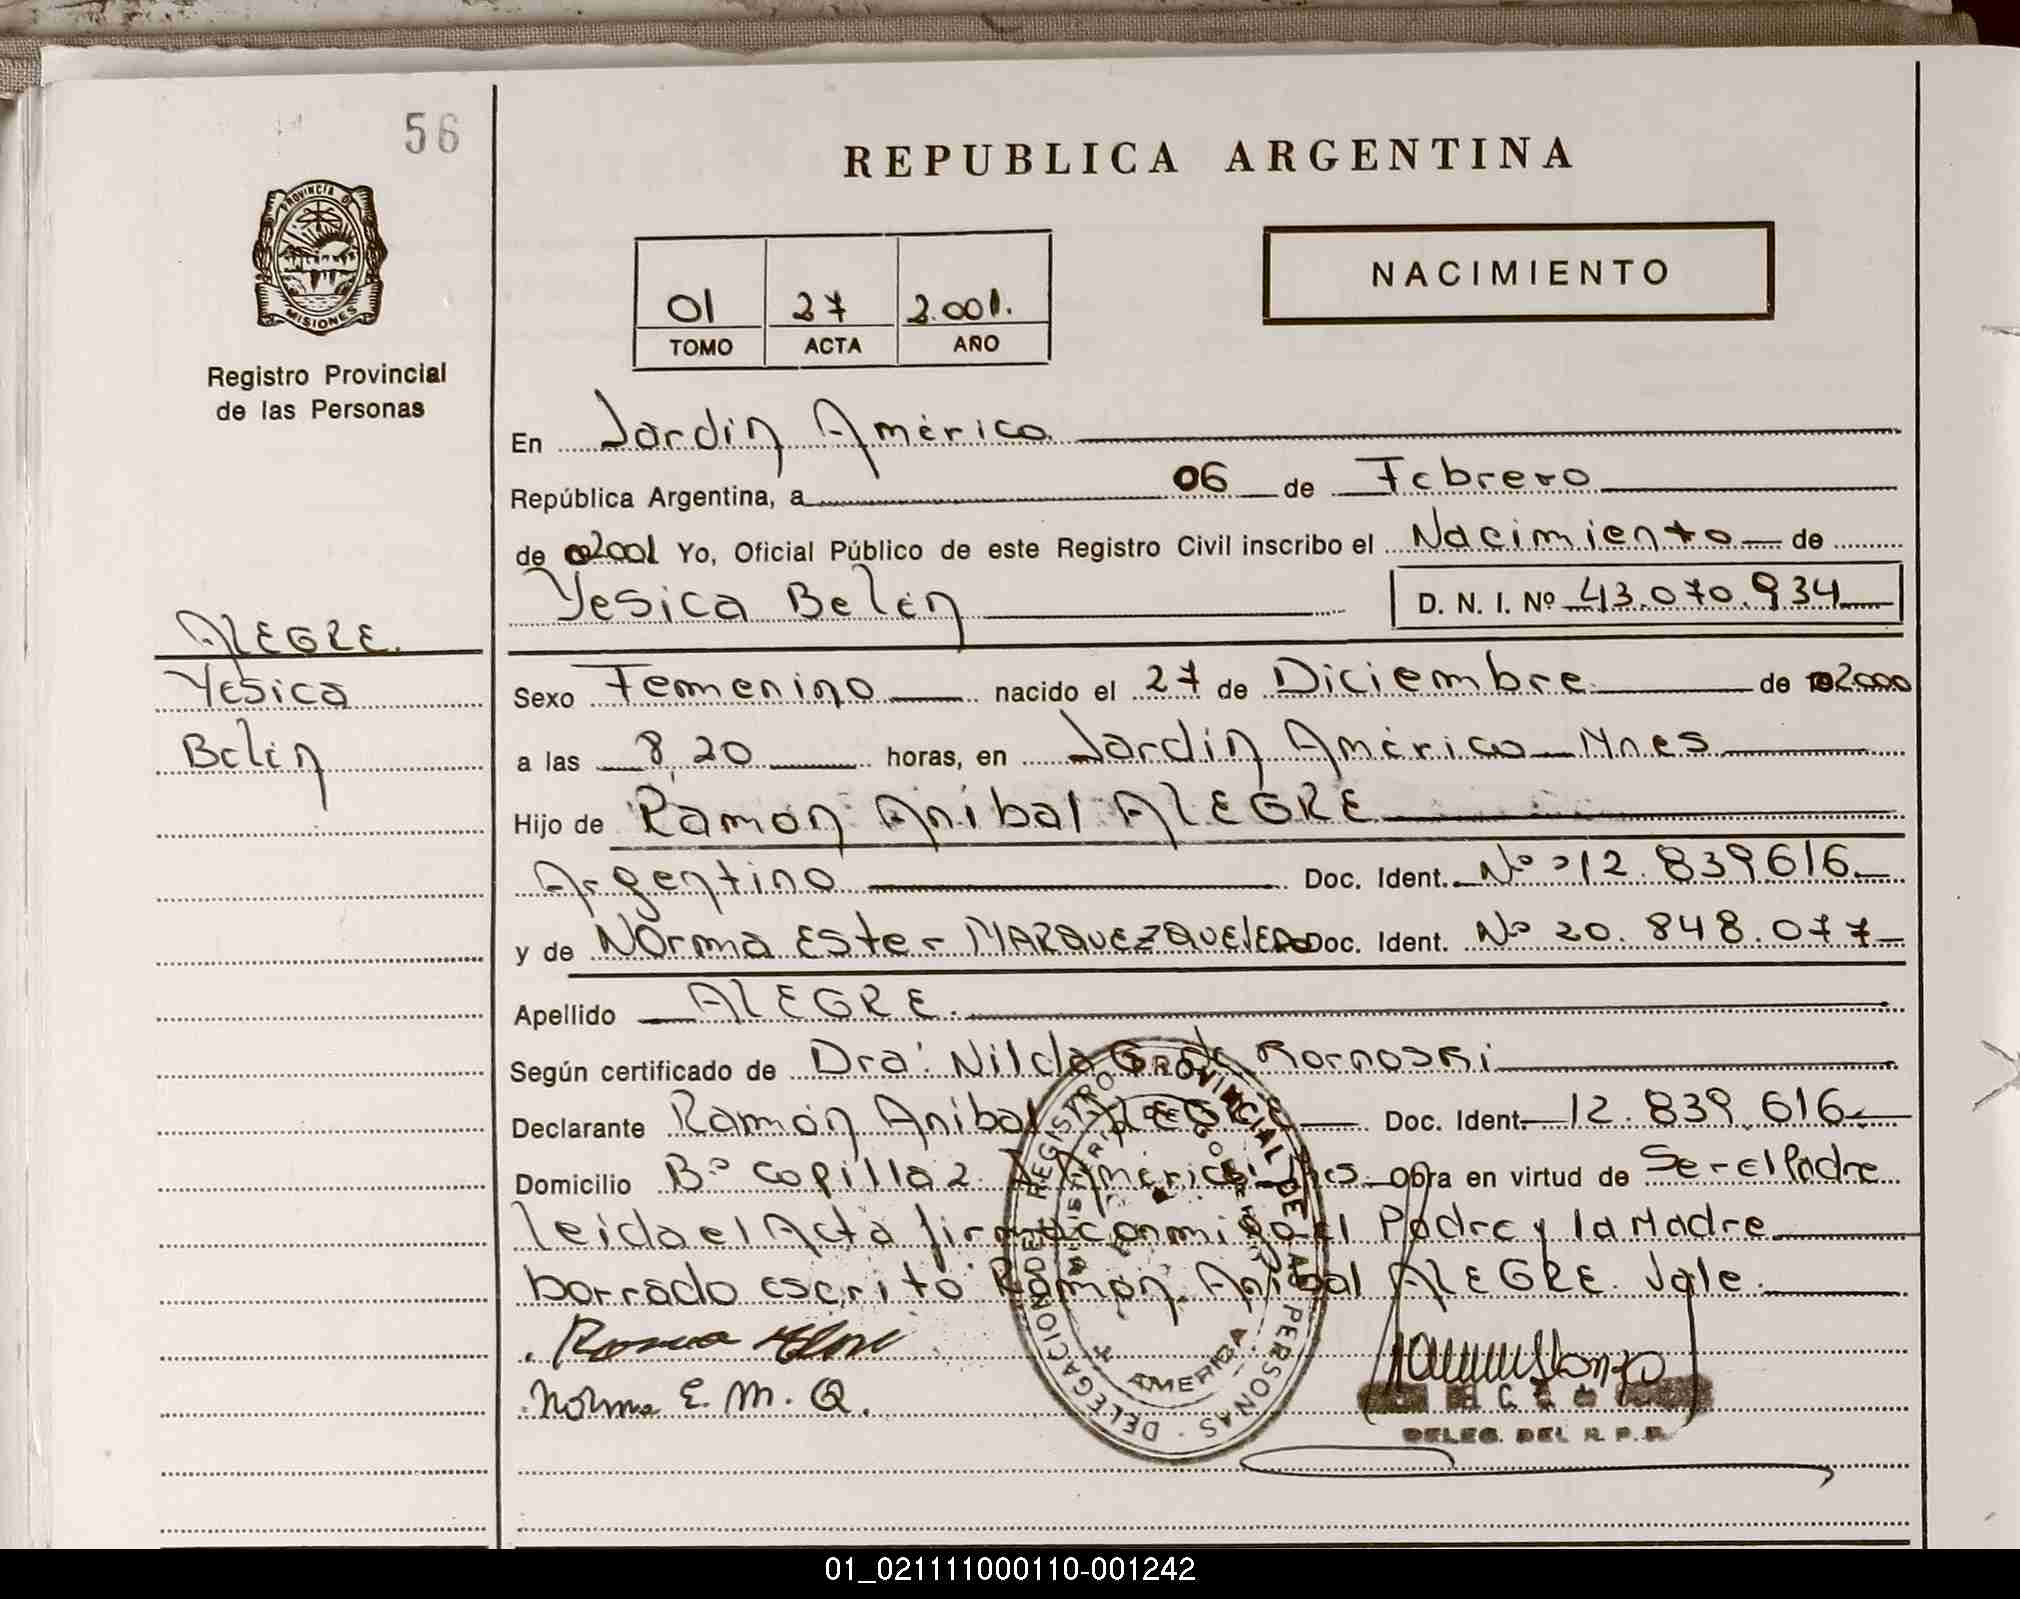 56
PROVINCIA DE
MISIONES
Registro Provincial
de las Personas
REPUBLICA ARGENTINA
01 27 2.001.
TOMO ACTA AÑO
NACIMIENTO
En Jardín América
República Argentina, a 06 de Febrero
de 2001 Yo, Oficial Público de este Registro Civil inscribo el Nacimiento de
Yesica Belén D. N. I. Nº 43.070.934
ALEGRE.
Yesica
Belén
Sexo Femenino nacido el 27 de Diciembre de 2000
a las 8,20 horas, en Jardín América Mnes
Hijo de Ramón Aníbal ALEGRE
Argentino Doc. Ident. Nº 12.839616
y de Norma Ester MARQUEZ Doc. Ident. Nº 20.848.077
Apellido ALEGRE.
Según certificado de Dra: Nilda G. de
Declarante Ramón Aníbal ALEGRE Doc. Ident. 12.839.616
Domicilio Bº Copilla 2. J. América Mnes obra en virtud de Ser el Padre
leida el Acta firma conmigo el Padre y la Madre
borrado escrito Ramón Aníbal ALEGRE. Vale.
Norma E. M. Q.
DELEGACION DEL REGISTRO PROVINCIAL DE LAS PERSONAS
AMERICA
DELEG. DEL R. P. P.
01_021111000110-001242